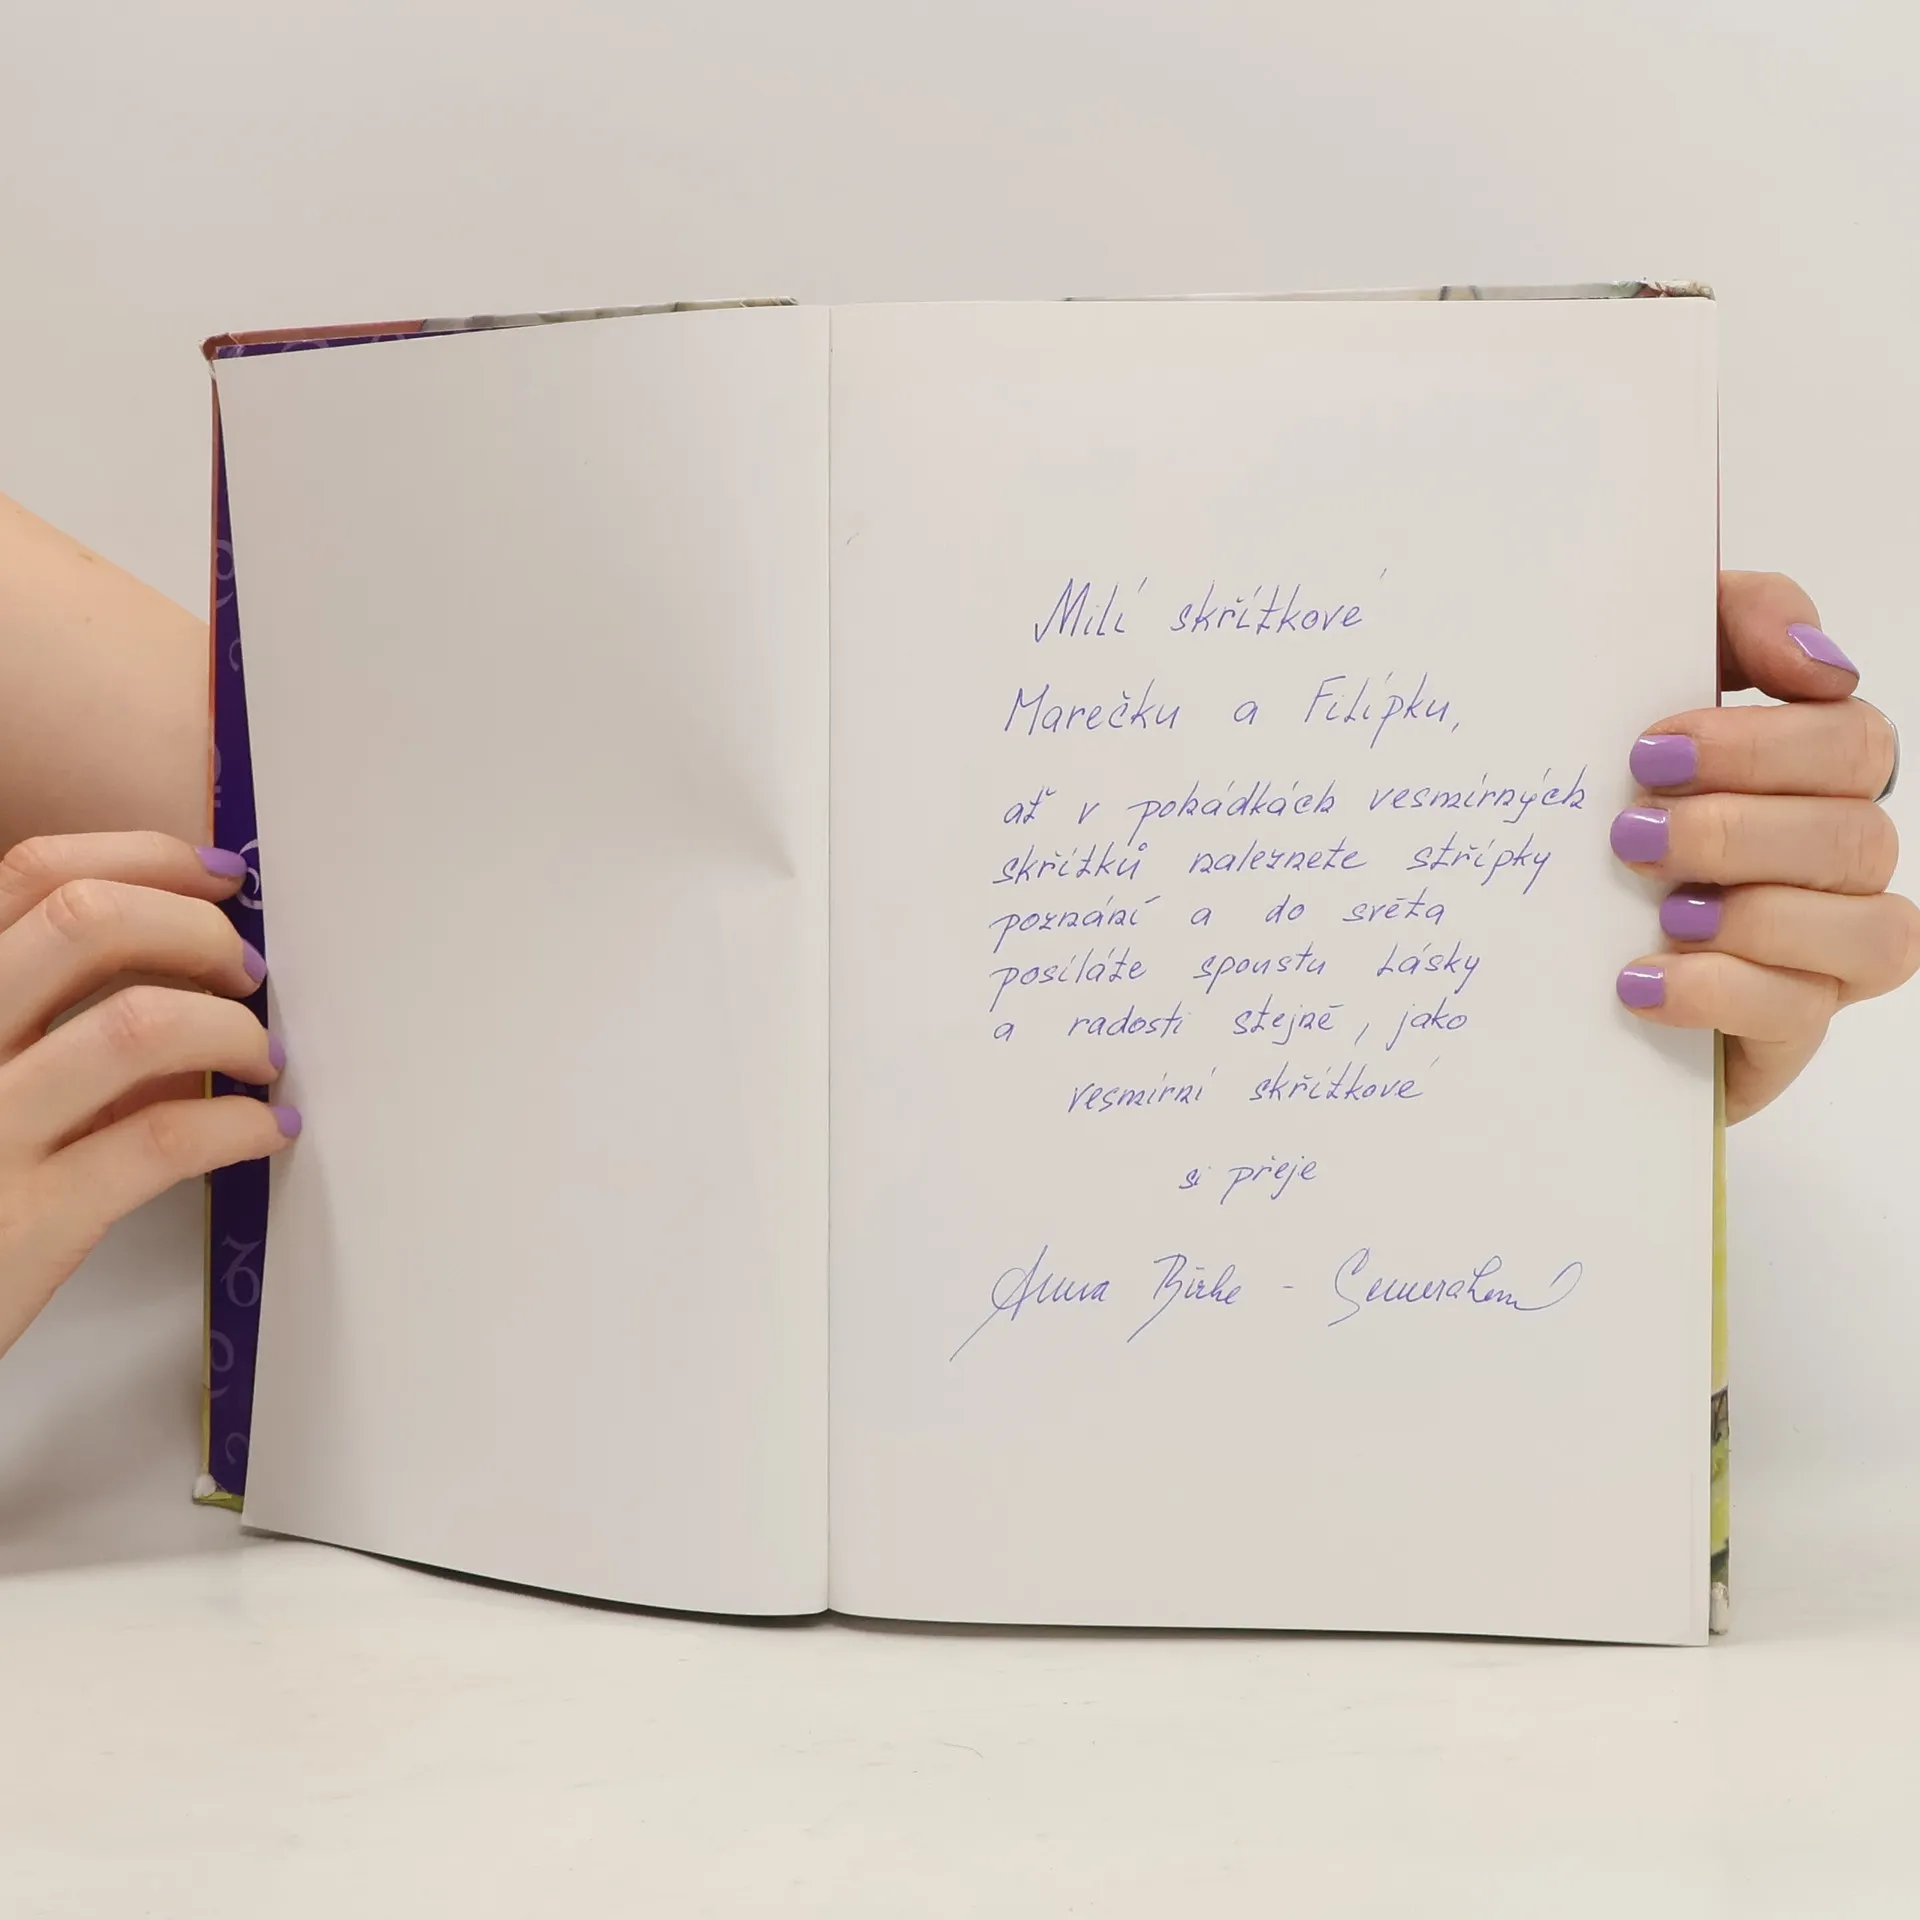 Milí skřítkové
Marečku a Filípku,
ať v pohádkách vesmírných
skřítků naleznete střípky
poznání a do světa
posíláte spoustu lásky
a radosti stejně, jako
vesmírní skřítkové
si přeje
Anna Birke -